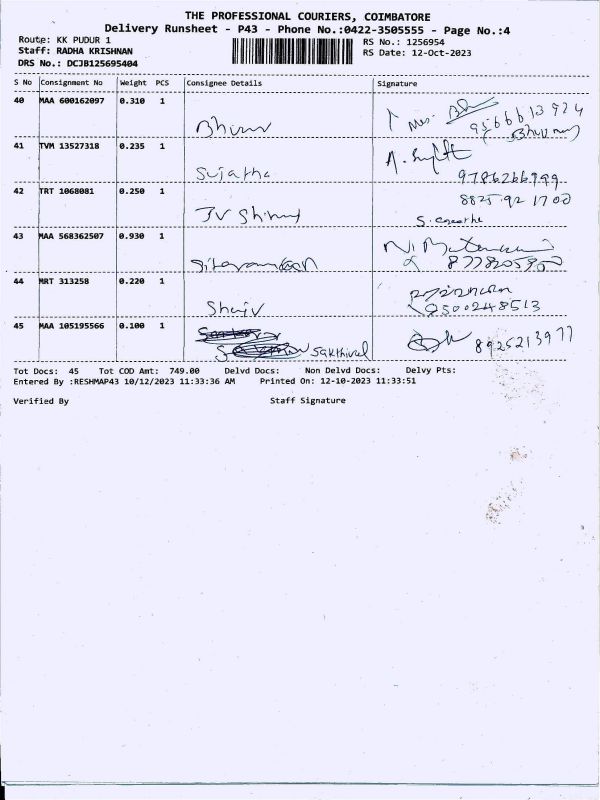 THE PROFESSIONAL COURIERS, COIMBATORE
Delivery Runsheet - P43 - Phone No.:0422-3505555 - Page No.:4
Route: KK PUDUR 1 RS No.: 1256954
Staff: RADHA KRISHNAN RS Date: 12-Oct-2023
DRS No.: DCJB125695404
S No Consignment No Weight PCS Consignee Details Signature
40 MAA 600162097 0.310 1
9566613924
41 TVM 13527318 0.235 1
Sujatha 9786266999
42 TRT 1068081 0.250 1 8825 92 1700
43 MAA 568362507 0.930 1
44 MRT 313258 0.220 1
9500248513
45 MAA 105195566 0.100 1
Sakthivel 8925213977
Tot Docs: 45 Tot COD Amt: 749.00 Delvd Docs: Non Delvd Docs: Delvy Pts:
Entered By :RESHMAP43 10/12/2023 11:33:36 AM Printed On: 12-10-2023 11:33:51
Verified By Staff Signature